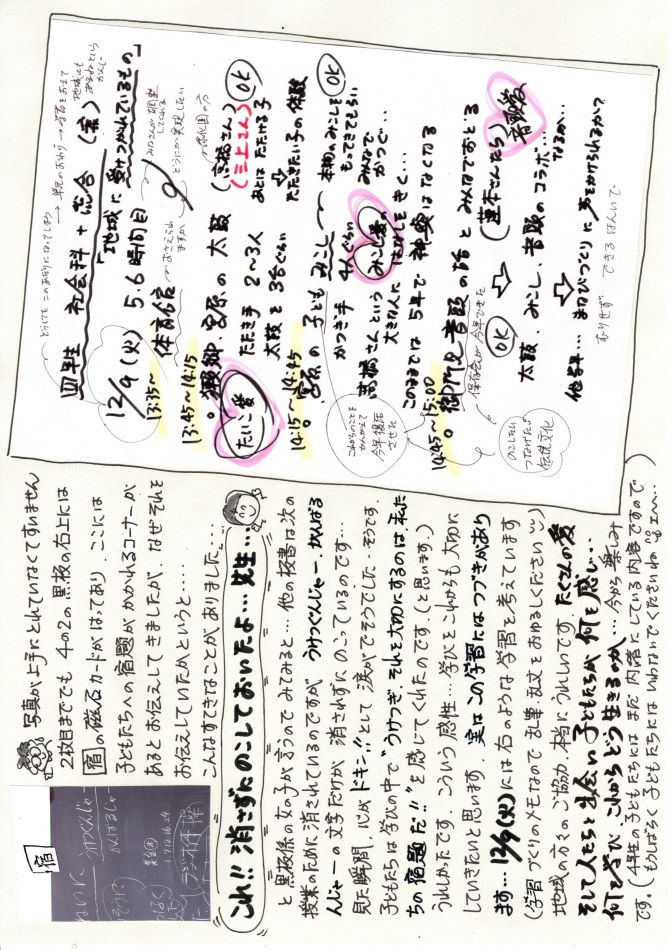 四年生 社会科+総合（案）
「地域に受けつがれているもの」
12/9（火） 5.6時間目
13:35〜 体育館
13:45〜14:15
。獅郷 宮原の太鼓
たいこ愛
たたき手 2〜3人
太鼓を3台ぐらい
（高橋さん）
（三上さん）
OK
あとは たたける子
⇩
たたきたい子の体験
14:15〜14:45
。宮原の子どもみこし
OK
かつぎ手 4人ぐらい
本物のみこしを
もってきてもらい
みんなで
かつぐ…
みこし愛の
高橋さんという
大きな人に
はなしをきく…
このままでは5年で神輿はなくなる
14:45〜15:00
。御所段音頭の話とみんなでおどる
保存会が今年できた
OK
音頭愛
太鼓、みこし、音頭のコラボ…
なるか…
他学年… まなびづくりに声をかけられるか?
むりせず できるはんいで
これからのことを
かんがえて
今年復活
させた
のこしたい
つなげたい
伝統文化
写真が上手にとれていなくてすいません
2枚目まででも 4の2の黒板の右上には
宿の磁石カードがはってあり、ここには
子どもたちへの宿題がかかれるコーナーが
あるとお伝えしてきましたが、なぜそれを
お伝えしていたかというと……
こんなすてきなことがありました…
これ!! 消さずにのこしておいたよ…先生…
と黒板係の女の子が言うのでみてみると…他の板書は次の
授業のために消されているのですが うけつぐんじゃー かんばる
んじゃーの文字だけが 消されずに のこっているのです…
見た瞬間、心がドキン!!として 涙がでそうでした。そうです。
子どもたちは学びの中で"うけつぎ、それを大切にするのは、私た
ちの宿題だ!!"を感じてくれたのです。（と思います。）
うれしかたです。こういう感性…学びをこれからも大切に
していきたいと思います。実はこの学習にはつづきがあり
ます…12/9(火)には右のような学習を考えています
（学習づくりのメモなので乱筆、乱文をおゆるしください）
地域の方々のご協力、本当にうれしいです。たくさんの愛
そして人たちと出会い 子どもたちが何を感じ…
何を学び、これからどう生きるのか… 今から楽しみ
です。（4年生の子どもたちにはまだ内緒にしている内容ですので
もうしばらく子どもたちにはいわないでくださいね
宿
うけつぐんじゃー
がんばるじゃー